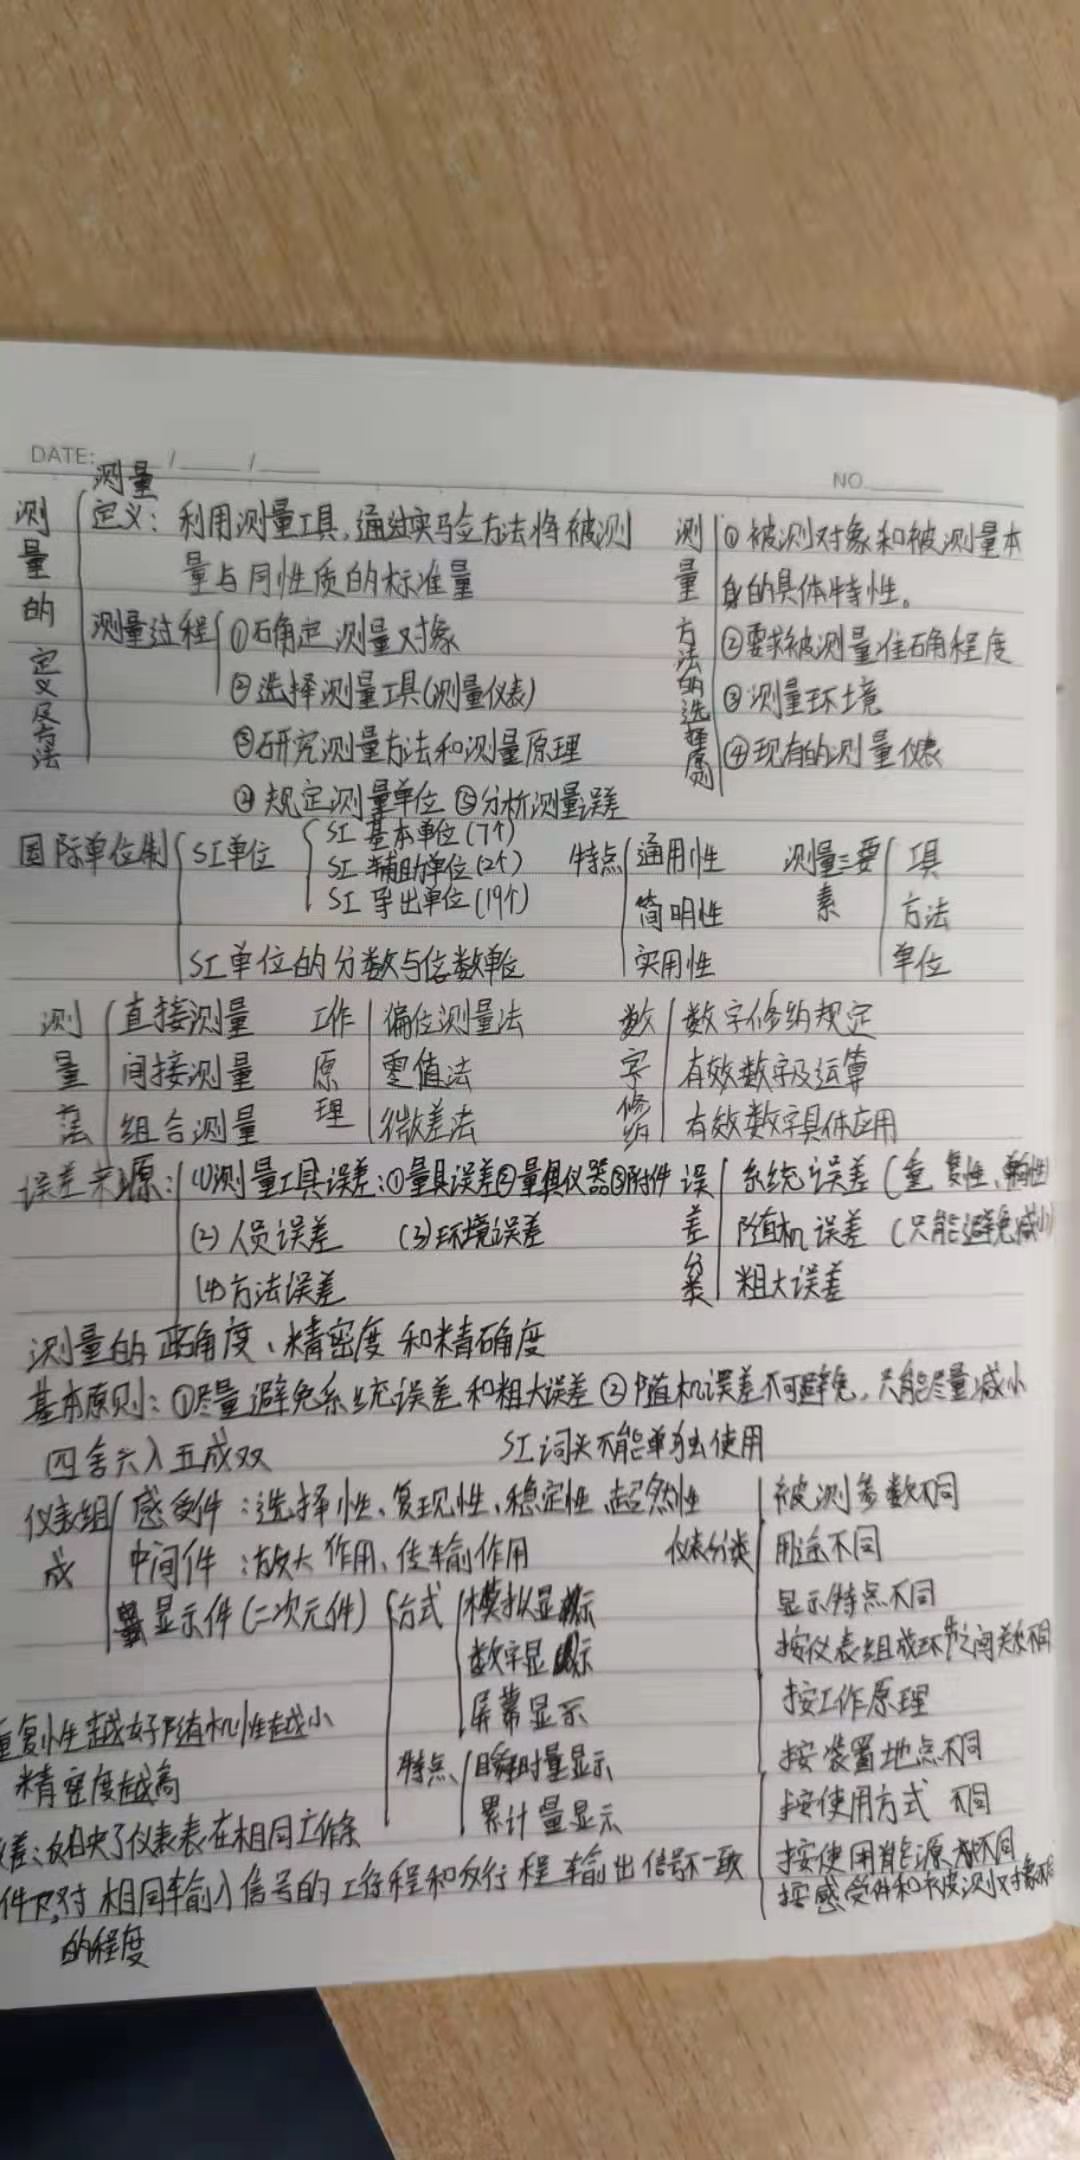 DATE: / /
NO.
测量
测量的定义及方法
定义：利用测量工具，通过实验方法将被测
量与同性质的标准量
测量过程 ①确定测量对象
②选择测量工具(测量仪表)
③研究测量方法和测量原理
④规定测量单位 ⑤分析测量误差
测量方法的选择原则
①被测对象和被测量本
身的具体特性。
②要求被测量准确程度
③测量环境
④现有的测量仪表
国际单位制 SI单位
SI 基本单位(7个)
SI 辅助单位(2个)
SI 导出单位(19个)
SI单位的分数与倍数单位
特点 通用性
简明性
实用性
测量三要素
工具
方法
单位
测量方法
直接测量
间接测量
组合测量
工作原理
偏位测量法
零值法
微差法
数字修约
数字修约规定
有效数字及运算
有效数字具体应用
误差来源：(1)测量工具误差：①量具误差②量具仪器③附件
(2)人员误差 (3)环境误差
(4)方法误差
误差分类
系统误差(重复性、单向性
随机误差(只能避免减小)
粗大误差
测量的正确度、精密度和精确度
基本原则：①尽量避免系统误差和粗大误差②随机误差不可避免，只能尽量减小
四舍六入五成双 SI词头不能单独使用
仪表组成
感受件：选择性、复现性、稳定性、超然性
中间件：放大作用、传输作用
显示件(二次元件) 方式
模拟显示
数字显示
屏幕显示
特点 瞬时量显示
累计量显示
仪表分类
被测参数不同
用途不同
显示特点不同
按仪表组成环节之间关系不同
按工作原理
按装置地点不同
按使用方式不同
按使用能源不同
按感受件和被测对象不同
重复性越好随机性越小
精密度越高
差：反映了仪表表在相同工作条
件下，对相同输入信号的工作程和反行程输出信号不一致
的程度